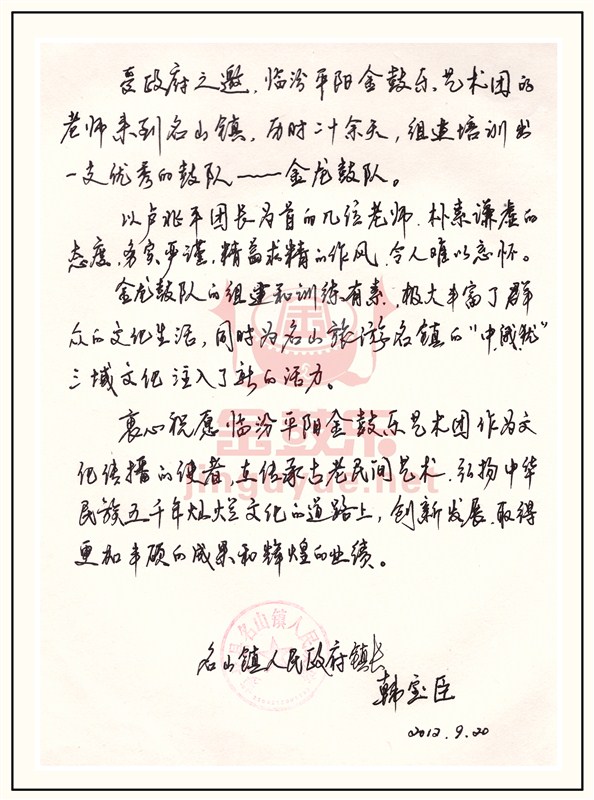 受政府之邀，临汾平阳金鼓乐艺术团的
老师来到名山镇，历时二十余天，组建培训出
一支优秀的鼓队——金龙鼓队。
以卢兆平团长为首的几位老师.朴素谦虚的
态度，务实严谨，精益求精的作风，令人难以忘怀。
金龙鼓队的组建和训练有素，极大丰富了群
众的文化生活，同时为名山旅游名镇的“中俄犹”
三域文化注入了新的活力。
衷心祝愿临汾平阳金鼓乐艺术团作为文
化传播的使者，在传承古老民间艺术.弘扬中华
民族五千年灿烂文化的道路上，创新发展.取得
更加丰硕的成果和辉煌的业绩。
金鼓乐
jinguyue.net
名山镇人民
名山镇人民政府镇长
韩宝臣
2012.9.20